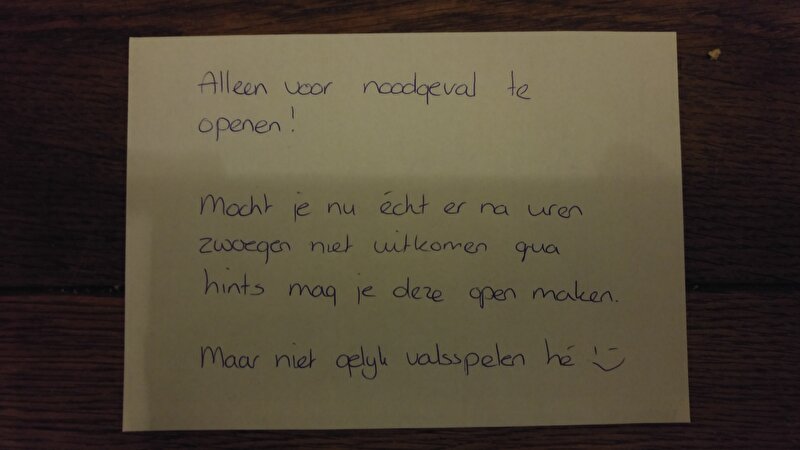 Alleen voor noodgeval te
openen!
Mocht je nu écht er na uren
zwoegen niet uitkomen qua
hints mag je deze open maken.
Maar niet gelyk valsspelen hé